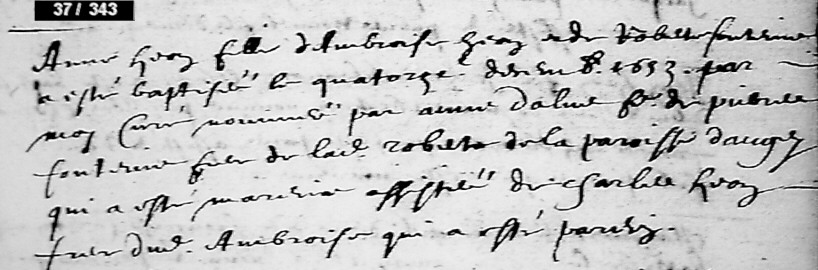 37 / 343
Anne heoy fille d'Ambroise heoy et de Robette fontaine
a esté baptisée le quatorze decemb. 1653. par
moy Curé nommée par anne fe. de pierre
fontaine frer de lad. robette de la paroisse daugy
qui a esté mareine assistée de charles heoy
frer dud. Ambroise qui a esté parein.